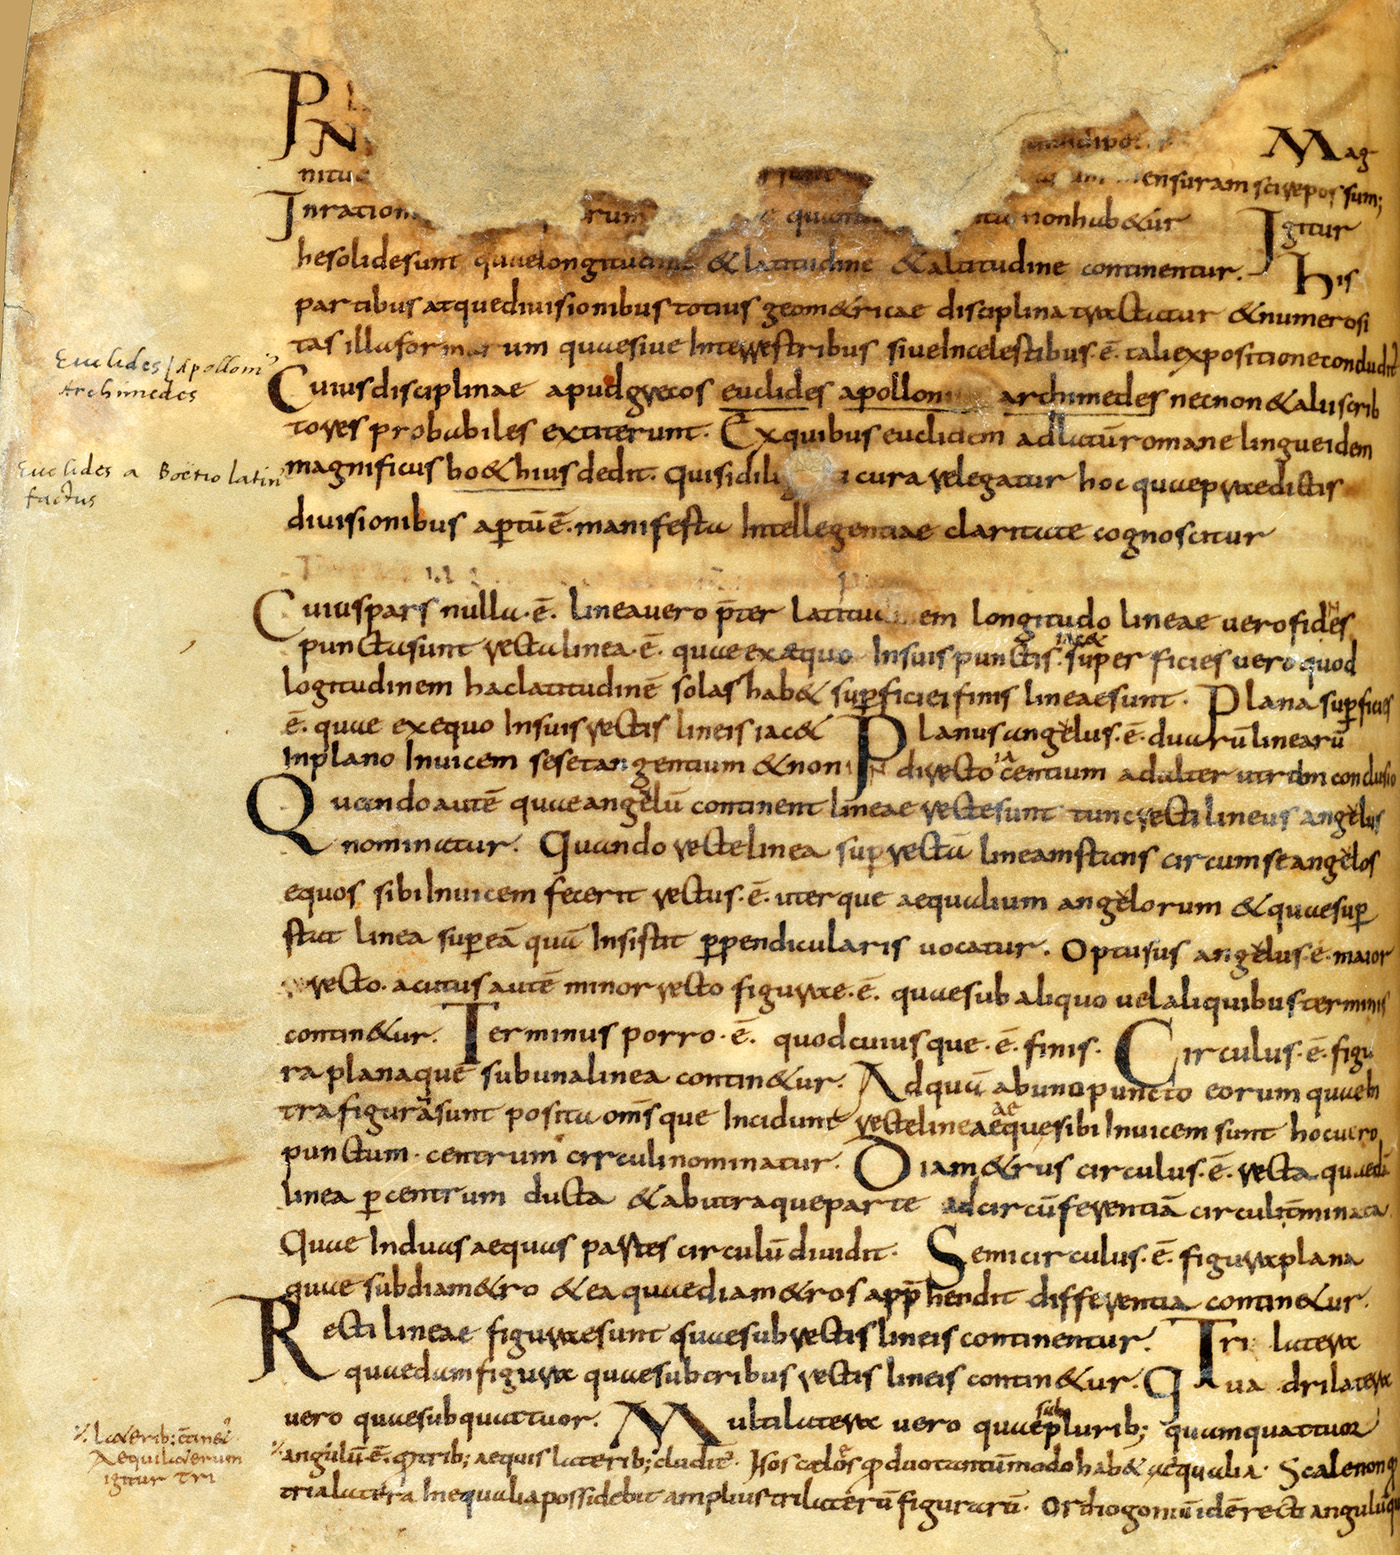 P
N Mag
nitu mensuram scire possum;
In ration rum nonhab&ur Igitur
he solide sunt quae longitudine & latitudine & altitudine continentur. His
partibus atque diuisionibus totius geom&ricae disciplina tractatur & numerosi
tas illa formarum quae siue in terrestribus siue in celestibus ē. tali expositione concludit
Euclides / Apolloni9
Archimedes
Cuius disciplinae apud grecos euclides apolloni archimedes necnon & alii scrib
tores probabiles extiterunt. Ex quibus euclidem adlatū romane lingue idem
Euclides a Boetio latin9
factus
magnificus bo&hius dedit. qui si dili cura relegatur hoc quae predictis
diuisionibus aptū ē. manifesta intellegentiae claritate cognoscitur
Cuius pars nulla. ē. linea uero p̄ter latitudinem longitudo lineae uero fides
puncta sunt recta linea. ē. quae ex aequo in suis punctis. iac& super ficies uero quod
logitudinem hac latitudinē solas hab& superficiei finis lineae sunt. Plana superficies
ē. quae ex equo in suis rectis lineis iac& Planus angelus. ē. duarū linearū
in plano inuicem sese tangentium & non in directo iacentium ad alterutrū conclusio
Quando autē quae angelū continent lineae recte sunt tunc recti lineus angelus
nominatur. Quando recte linea sup rectā lineam stans circum se angelos
equos sibi inuicem fecerit rectus. ē. uterque aequalium angelorum & quae sup
stat linea sup eā quā insistit ppendicularis uocatur. Optusus angelus. ē. maior
recto. acutus autē minor recto figurae. ē. quae sub aliquo uel aliquibus terminis
contin&ur. Terminus porro. ē. quod cuiusque. ē. finis. Circulus. ē. figu
ra plana quē sub una linea contin&ur. Ad quā ab uno puncto eorum quae in
tra figurā sunt posita om̄sque incidunt recte lineae aequae sibi inuicem sunt hoc uero
punctum. centrum circuli nominatur. Diam&rus circulus. ē. recta quaedā
linea p centrum ducta & ab utraque parte ad circūferentiā circuli t̄minata
Quae in duas aequas partes circulū diuidit. Semicirculus. ē. figura plana
quae sub diam&ro & ea quae diam&ros app̄hendit differentia contin&ur.
Recti lineae figurae sunt quae sub rectis lineis continentur. Tri latera
quaedam figura quae sub tribus rectis lineis contin&ur. Qua drilatera
uero quae sub quattuor. Multilatera uero quae sub plurib; quam quattuor
Aequilaterum
igitur tri
angulū. ē. q trib; aequis laterib; cludit. Isosceles q duo tantūmodo hab& aequalia. Scalenon q
tria latera inequalia possidebit amplius trilaterū figurarū. Orthogoniū idē rectiangulū qu